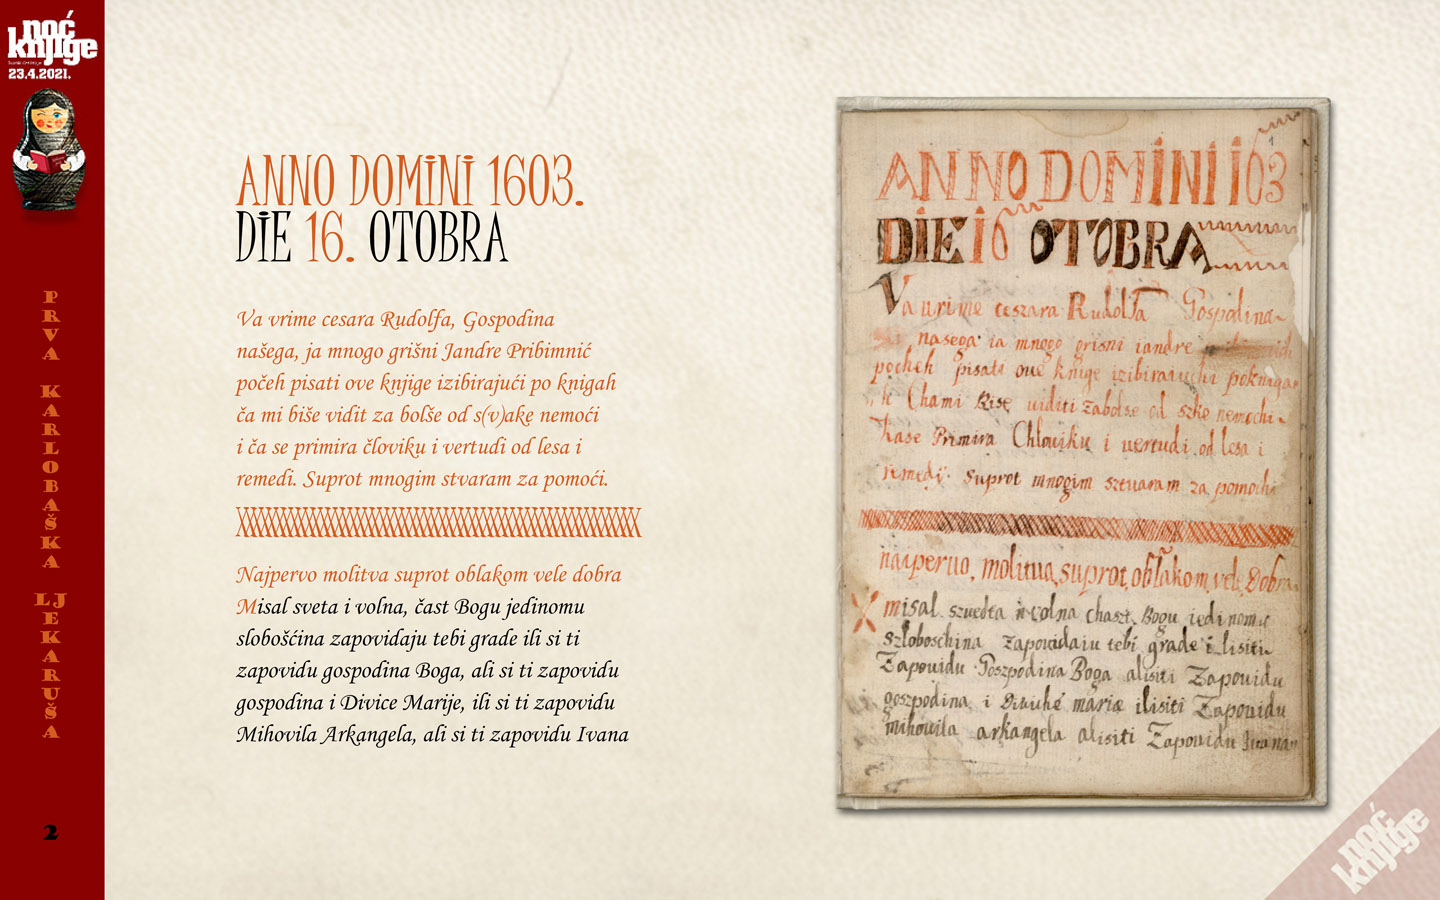 noć
knjige
23.4.2021.
PRVA KARLOBAŠKA LJEKARUŠA
2
ANNO DOMINI 1603.
DIE 16. OTOBRA
Va vrime cesara Rudolfa, Gospodina
našega, ja mnogo grišni Jandre Pribimnić
počeh pisati ove knjige izibirajući po knigah
ča mi biše vidit za bolše od s(v)ake nemoći
i ča se primira človiku i vertudi od lesa i
remedi. Suprot mnogim stvaram za pomoći.
Najpervo molitva suprot oblakom vele dobra
Misal sveta i volna, čast Bogu jedinomu
slobošćina zapovidaju tebi grade ili si ti
zapovidu gospodina Boga, ali si ti zapovidu
gospodina i Divice Marije, ili si ti zapovidu
Mihovila Arkangela, ali si ti zapovidu Ivana
ANNO DOMINI 1603
DIE 16 OTOBRA
Va urime ceszara Rudolfa Goszpodina
nasega ia mnogo grisni iandre
pocheh pisati oue knige izibiraiuchi poknigah
Chami Bise uiditi zabolse od szke nemochi
Primira Chlouiku i uertudi od lesa i
remedi Suprot mnogim sztuaram za pomochi
naiperuo, molitua, suprot, oblakom, vele, Dobra
misal szuedta i volna chaszt Bogu iedinomu
szloboschina Zapouidaiu tebi grade ilisiti
Zapouidu Goszpodina Boga alisiti Zapouidu
goszpodina i mariæ ilisiti Zapouidu
mihouila arkangela alisiti Zapouidu iuana
noć
knjige